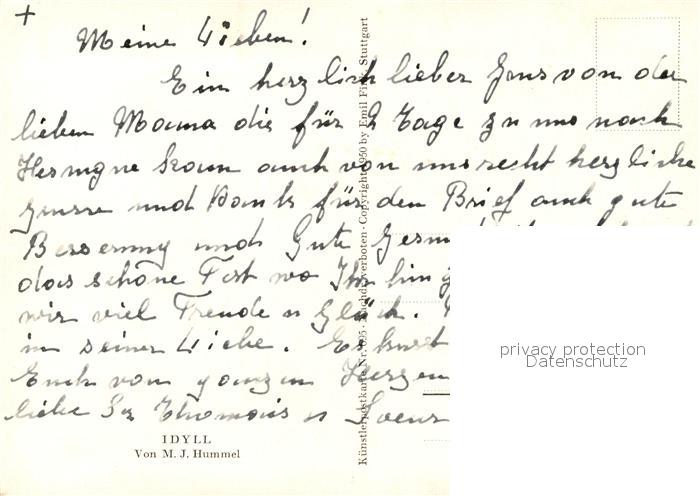 +
Meine Lieben!
Ein herzlich lieber Gruss von der
lieben Mama die für 2 Tage zu uns nach
kam auch von uns recht herzliche
Grüsse und Dank für den Brief auch gute
Besserung und Gute
das schöne Fest wo Ihr
wir viel Freude u Glück.
in seiner Liebe. Es küsst
Euch von ganzen Herzen
liebe Sr u Soeur
IDYLL
Von M. J. Hummel
Künstlerpostkarte Nr. - Nachdruck verboten - Copyright 1950 by Emil Fink Stuttgart
privacy protection
Datenschutz